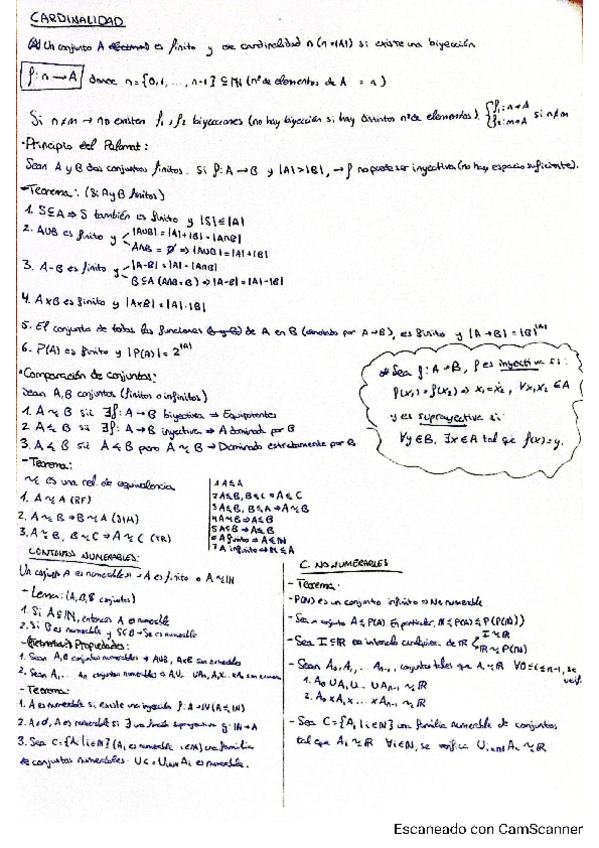 CARDINALIDAD
Un conjunto A es finito y de cardinalidad n (n=|A|) si existe una biyección
f: n → A donde n = {0,1,...,n-1} ⊆ ℕ (nº de elementos de A = n)
Si n≠m → no existen f₁, f₂ biyecciones (no hay biyección si hay distintos nº de elementos). {f₁: n→A f₂: m→A si n≠m
·Principio del Palomar:
Sean A y B dos conjuntos finitos. Si f: A → B y |A|>|B|, → f no puede ser inyectiva (no hay espacio suficiente).
-Teorema: (Si A y B finitos)
1. S⊆A ⇒ S también es finito y |S|≤|A|
2. A∪B es finito y |A∪B| = |A|+|B|-|A∩B|
A∩B = ∅ ⇒ |A∪B| = |A|+|B|
3. A-B es finito y |A-B| = |A|-|A∩B|
B⊆A (A∩B=B) ⇒ |A-B| = |A|-|B|
4. AxB es finito y |AxB| = |A|·|B|
5. El conjunto de todas las funciones de A en B (denotado por A→B), es finito y |A→B| = |B|^|A|
6. P(A) es finito y |P(A)| = 2^|A|
·Comparación de conjuntos:
Sean A,B conjuntos (finitos o infinitos)
1. A ~ B sii ∃f: A→B biyectiva → Equipotentes
2. A ≤ B sii ∃f: A→B inyectiva → A dominado por B
3. A < B sii A ≤ B pero A ≁ B → Dominado estrictamente por B
* Sea f: A→B, f es inyectiva si:
f(x₁) = f(x₂) ⇒ x₁ = x₂, ∀x₁,x₂ ∈ A
y es suprayectiva si:
∀y∈B, ∃x∈A tal que f(x)=y.
-Teorema:
~ es una rel. de equivalencia
1. A ~ A (RF)
2. A ~ B ⇒ B ~ A (SIM)
3. A ~ B, B ~ C ⇒ A ~ C (TR)
1 A ≤ A
2 A ≤ B, B ≤ C ⇒ A ≤ C
3 A ≤ B, B ≤ A ⇒ A ~ B
4 A ~ B ⇒ A ≤ B
5 A ⊆ B ⇒ A ≤ B
6 A finito ⇒ A ≤ ℕ
7 A infinito ⇒ ℕ ≤ A
CONJUNTOS NUMERABLES:
Un conjunto A es numerable si → A es finito o A ~ ℕ
-Lema: (A,B,S conjuntos)
1. Si A ≤ ℕ, entonces A es numerable
2. Si B es numerable y S⊆B → S es numerable
- Propiedades:
1. Sean A,B conjuntos numerables → A∪B, AxB son numerables
2. Sean A₁,... Aₙ conjuntos numerables → A₁∪... ∪Aₙ, A₁x...xAₙ son numerables
-Teorema:
1. A es numerable si existe una inyección f: A→ℕ (A ≤ ℕ)
2. A≠∅, A es numerable si ∃ una función suprayectiva g: ℕ→A
3. Sea C={Aᵢ | i∈ℕ} (Aᵢ es numerable i∈ℕ) una familia
de conjuntos numerables. ∪C = ∪ᵢ∈ℕ Aᵢ es numerable.
C. NO NUMERABLES
-Teorema:
-P(ℕ) es un conjunto infinito → No numerable
-Sea un conjunto A < P(A). En particular, ℕ < P(ℕ) < P(P(ℕ))
-Sea I ⊆ ℝ un intervalo cualquiera de ℝ I ~ ℝ
ℝ ~ P(ℕ)
-Sean A₀, A₁, ... Aₙ₋₁, conjuntos tales que Aᵢ ~ ℝ ∀0≤i≤n-1, se verif.
1. A₀ ∪ A₁ ∪ ... ∪ Aₙ₋₁ ~ ℝ
2. A₀ x A₁ x ... x Aₙ₋₁ ~ ℝ
-Sea C = {Aᵢ | i∈ℕ} una familia numerable de conjuntos
tal que Aᵢ ~ ℝ ∀i∈ℕ, se verifica ∪ᵢ∈ℕ Aᵢ ~ ℝ
Escaneado con CamScanner